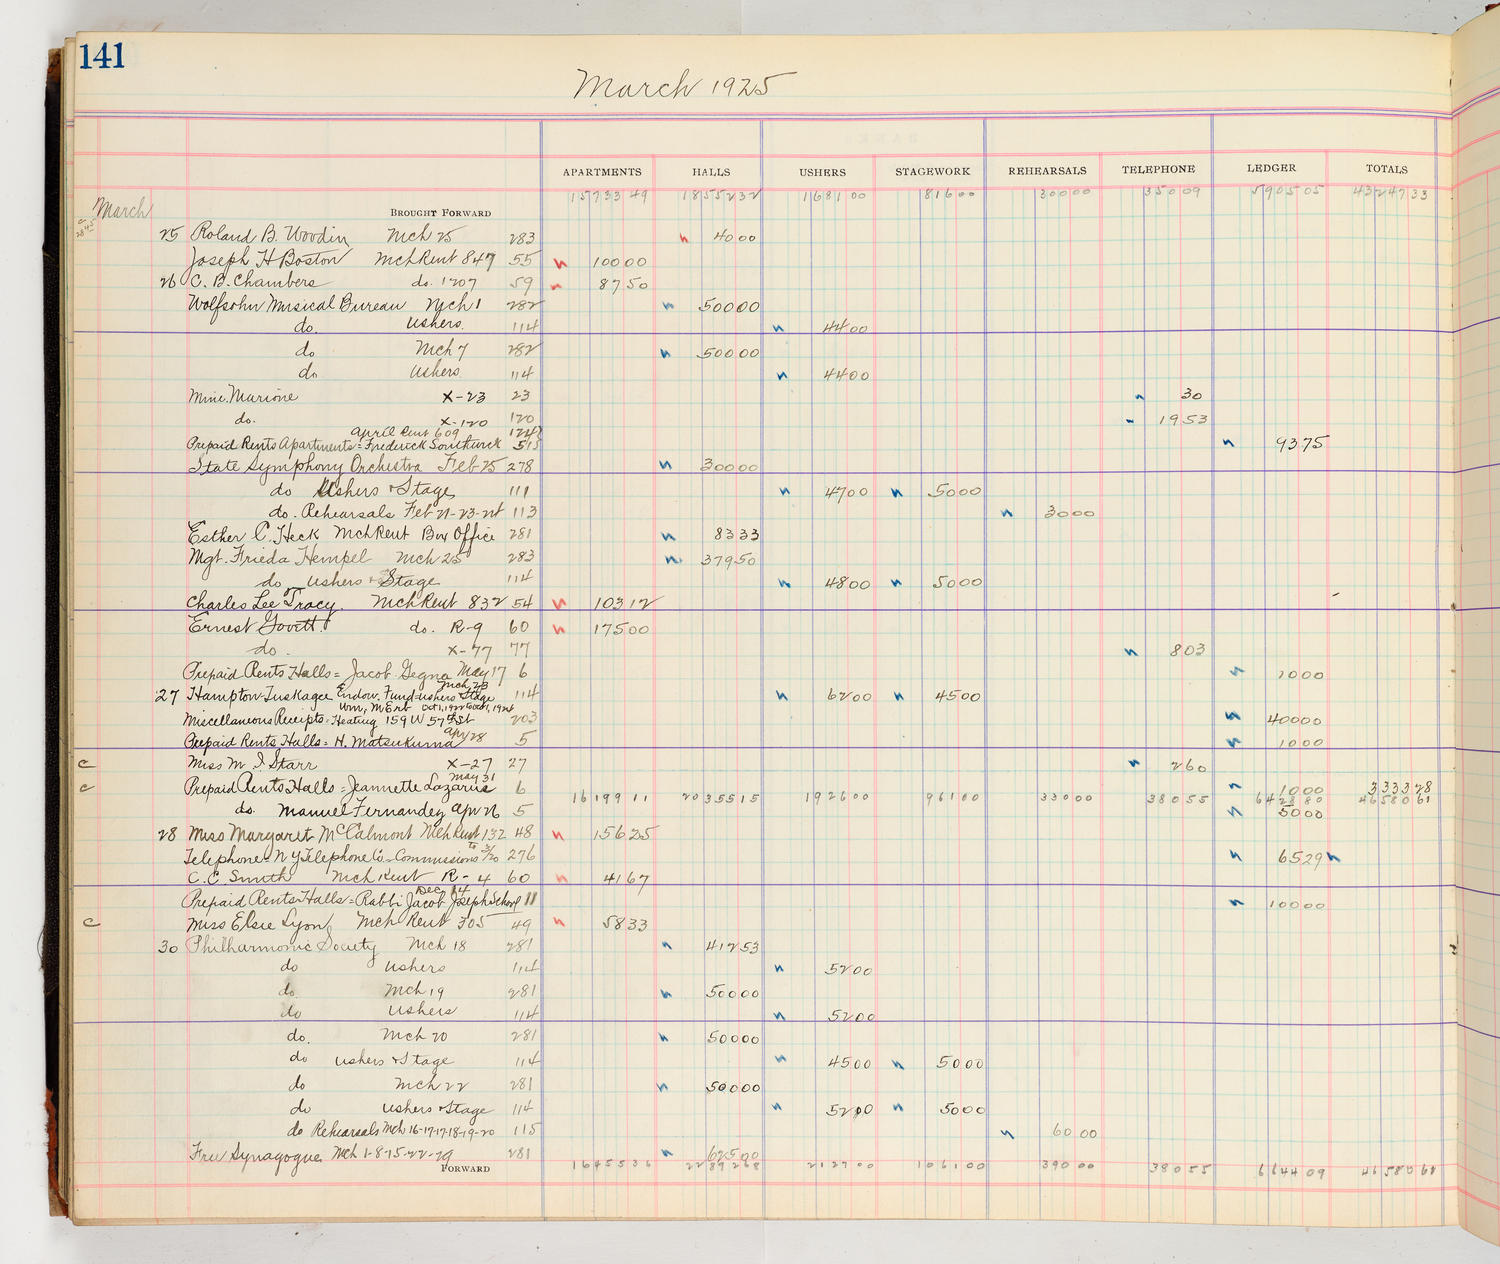 141
March 1925
APARTMENTS HALLS USHERS STAGEWORK REHEARSALS TELEPHONE LEDGER TOTALS
March BROUGHT FORWARD 1573349 1855232 168100 81600 30000 35009 590505 4324733
25 Roland B. Woodin Mch 25 283 4000
Joseph H Boston Mch Rent 847 55 10000
26 C. B. Chambers do. 1207 59 8750
Wolfsohn Musical Bureau Mch 1 282 50000
do. Ushers. 114 4400
do Mch 7 282 50000
do Ushers 114 4400
Mme. Marione X-23 23 30
do. X-120 120 1953
April Rent 609 124
Prepaid Rents Apartments = Frederick Southwick 515 9375
State Symphony Orchestra Feb 25 278 30000
do Ushers + Stage 111 4700 5000
do. Rehearsals Feb 21-23-24 113 3000
Esther C. Heck Mch Rent Box Office 281 8333
Mgt. Frieda Hempel Mch 25 283 37950
do Ushers + Stage 114 4800 5000
Charles Lee Tracy. Mch Rent 832 54 10312
Ernest do. R-9 60 17500
do. X-77 77 803
Prepaid Rents Halls = Jacob Gegna May 17 6 1000
Mch 23
27 Hampton-Tuskagee Endow. Fund = ushers Stage 114 6200 4500
Miscellaneous Receipts = Heating 159 W 57th St 203 40000
Prepaid Rents Halls = H. Matsukuma Apr 28 5 1000
c Miss M. I. Starr X-27 27 260
May 31
c Prepaid Rents Halls = Jeannette Lazarus 6 1000 333328
1619911 2035515 192600 96100 33000 38055 642880 4658061
do. Manuel Fernandez Apr 26 5 5000
28 Miss Margaret McCalmont Mch Rent 132 48 15625
Telephone = N Y Telephone Co - Commissions to 3/20 276 6529
C. C. Smith Mch Rent R-4 60 4167
Dec 14
Prepaid Rents Halls = Rabbi Jacob Joseph School 11 10000
c Miss Elsie Lyon Mch Rent 305 49 5833
30 Philharmonic Society Mch 18 281 41253
do Ushers 114 5200
do. Mch 19 281 50000
do Ushers 114 5200
do. Mch 20 281 50000
do ushers + Stage 114 4500 5000
do Mch 22 281 50000
do ushers + Stage 114 5200 5000
do Rehearsals Mch 16-17-17-18-19-20 115 6000
Free Synagogue Mch 1-8-15-22-29 281 62500
FORWARD 1645536 2289268 212700 106100 39000 38055 664409